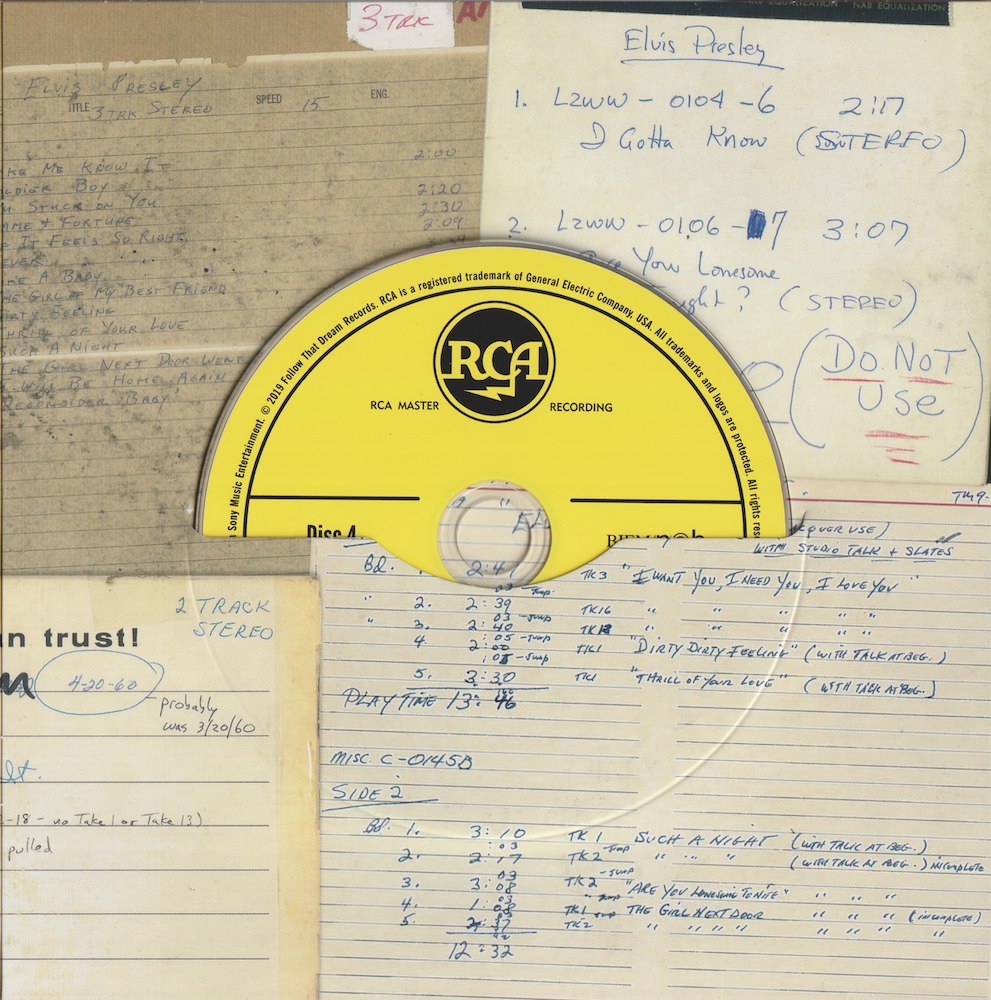 3 TRK
NAB EQUALIZATION
ELVIS PRESLEY
TITLE
3 TRK STEREO
SPEED 15 ENG.
KE ME KNOW IT 2:00
OLDIER BOY 2:20
STUCK ON YOU 2:30
AME & FORTUNE 2:09
E IT FEELS SO RIGHT
EVER
KE A BABY
HE GIRL OF MY BEST FRIEND
IRTY FEELING
THRILL OF YOUR LOVE
SUCH A NIGHT
THE GIRL NEXT DOOR WENT
WILL BE HOME AGAIN
RECONSIDER BABY
Elvis Presley
1. L2WW - 0104 - 6 2:17
I Gotta Know (STEREO)
2. L2WW - 0106 - 7 3:07
Are You Lonesome
ght? (STEREO)
(DO NOT
USE)
Sony Music Entertainment. © 2019 Follow That Dream Records. RCA is a registered trademark of General Electric Company, USA. All trademarks and logos are protected. All rights res
RCA
RCA MASTER RECORDING
Disc 4
BIEM/ncb
2 TRACK
STEREO
n trust!
4-20-60
probably
was 3/20/60
-18 - no Take 1 or Take 13)
pulled
OVER USE)
WITH STUDIO TALK + SLATES
Bd. 2:4 TK3 "I WANT YOU, I NEED YOU, I LOVE YOU"
:03 -JUMP
" 2. 2:39 TK16 " " "
:03 -JUMP
" 3. 2:40 " " "
:05 -JUMP
4. 2:00 TK1 "DIRTY DIRTY FEELING" (WITH TALK AT BEG.)
-JUMP
5. 3:30 TK1 "THRILL OF YOUR LOVE" (WITH TALK AT BEG.)
PLAY TIME 13:46
MISC. C-0145B
SIDE 2
Bd. 1. 3:10 TK 1 SUCH A NIGHT (WITH TALK AT BEG.)
:03 JUMP
2. 2:17 TK 2 " " " (WITH TALK AT BEG.) INCOMPLETE
:03 -JUMP
3. 3:08 TK 2 "ARE YOU LONESOME TONITE" " " "
:03 JUMP
4. 1:08 TK1 THE GIRL NEXT DOOR " " " (incomplete)
5. 2:37 TK2 " " " " " " " "
12:32